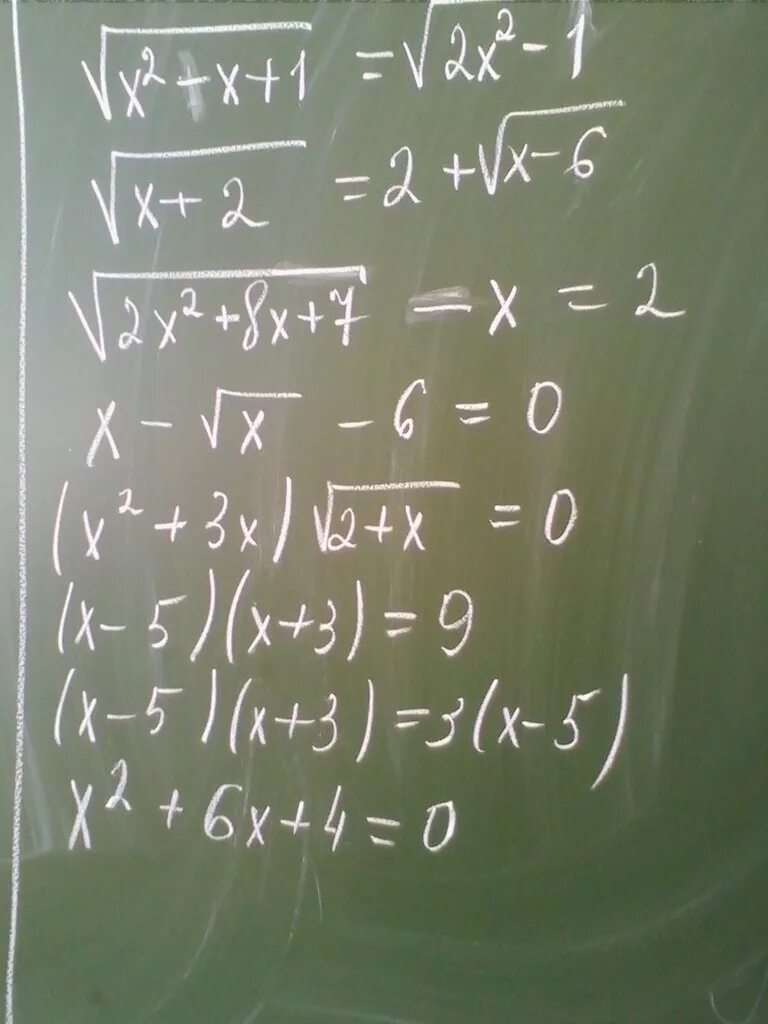 √(x² + x + 1) = √(2x² - 1)
√(x + 2) = 2 + √(x - 6)
√(2x² + 8x + 7) - x = 2
x - √x - 6 = 0
(x² + 3x) √(2 + x) = 0
(x - 5)(x + 3) = 9
(x - 5)(x + 3) = 3(x - 5)
x² + 6x + 4 = 0